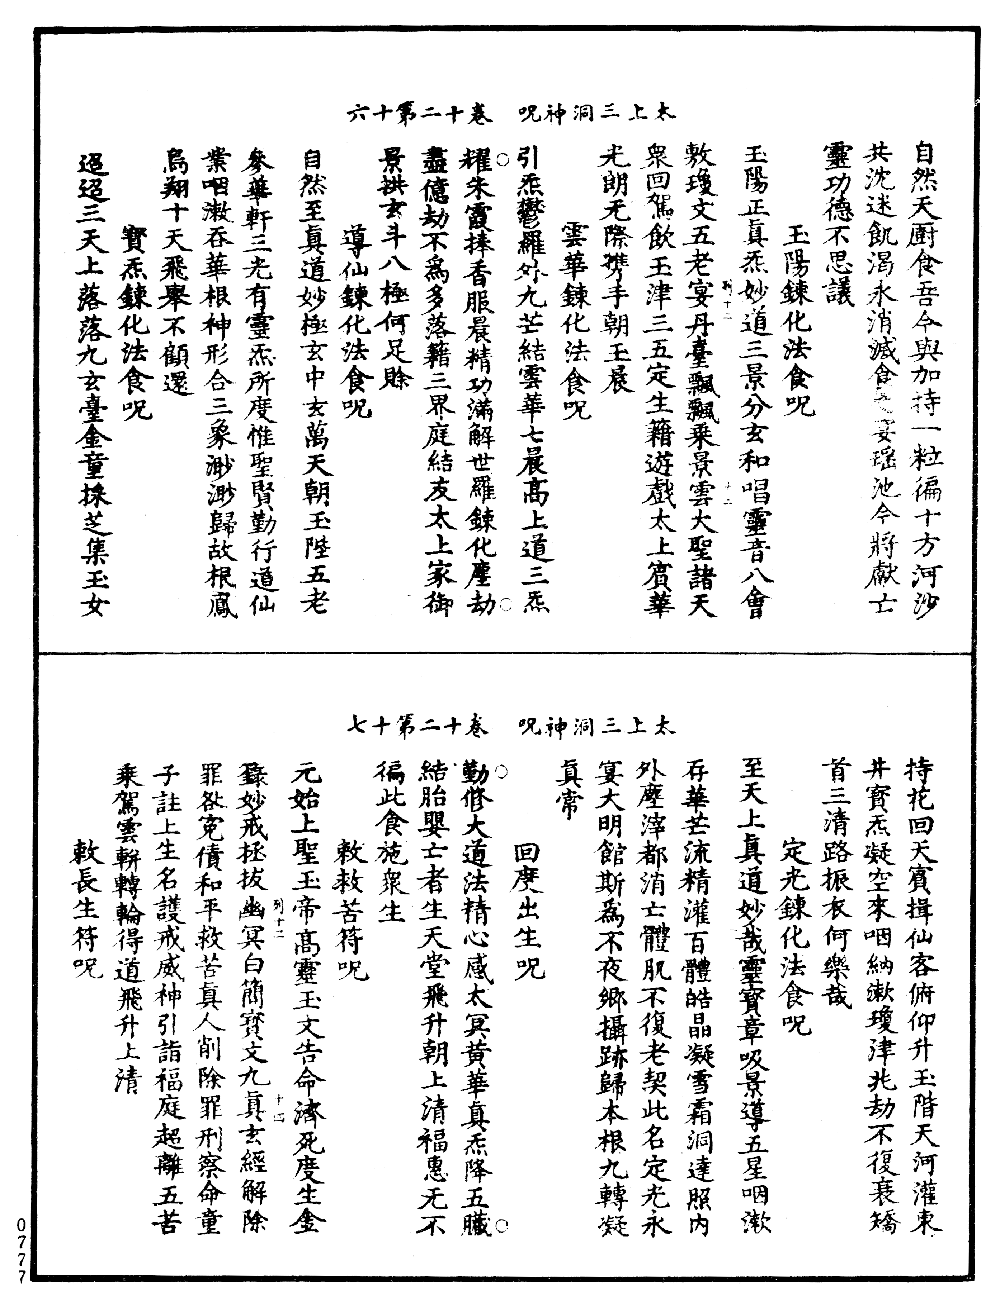 太上三洞神呪　卷十二第十六
自然天厨食吾今與加持一粒徧十方河沙
共沈迷飢渴永消滅食之宴瑶池今將獻亡
靈功德不思議
玉陽鍊化法食呪
玉陽正真炁妙道三景分玄和唱靈音八會
敷瓊文五老宴丹臺飄飄乗景雲大聖諸天
衆回駕飲玉津三五定生籍遊戲太上賔華
光朗无際攜手朝玉晨
雲華鍊化法食呪
引炁鬱羅外九芒結雲華七晨髙上道三炁
耀朱霞捧香服晨精功滿解世羅鍊化塵劫
盡億劫不為多落籍三界庭結友太上家御
景拱玄斗八極何足賒
導仙鍊化法食呪
自然至真道妙極玄中玄萬天朝玉陛五老
參華軒三光有靈炁所度惟聖賢勤行道仙
業咽漱吞華根神形合三象渺渺歸故根鳳
鳥翔十天飛舉不顧還
寳炁鍊化法食呪
迢迢三天上落落九玄臺金童採芝集玉女
太上三洞神呪　卷十二第十七
持花回天賔揖仙客俯仰升玉階天河灌東
井寳炁凝空來咽納漱瓊津兆劫不復衰矯
首三清路振衣何樂哉
定光鍊化法食呪
至天上真道妙哉靈寳章吸景導五星咽漱
存華芒流精灌百體皓晶凝雪霜洞達照内
外塵滓都消亡體肌不復老契此名定光永
宴大明館斯為不夜鄉攝跡歸本根九轉凝
真常
回度出生呪
勤修大道法精心感太冥黄華真炁降五臟
結胎嬰亡者生天堂飛升朝上清福惠无不
徧此食施衆生
敕救苦符呪
元始上聖玉帝髙靈玉文告命濟死度生金
籙妙戒拯拔幽冥白簡寳文九真玄經解除
罪啟冤債和平救苦真人削除罪刑察命童
子註上生名護戒威神引詣福庭超離五苦
乘駕雲輧轉輪得道飛升上清
敕長生符呪
0777